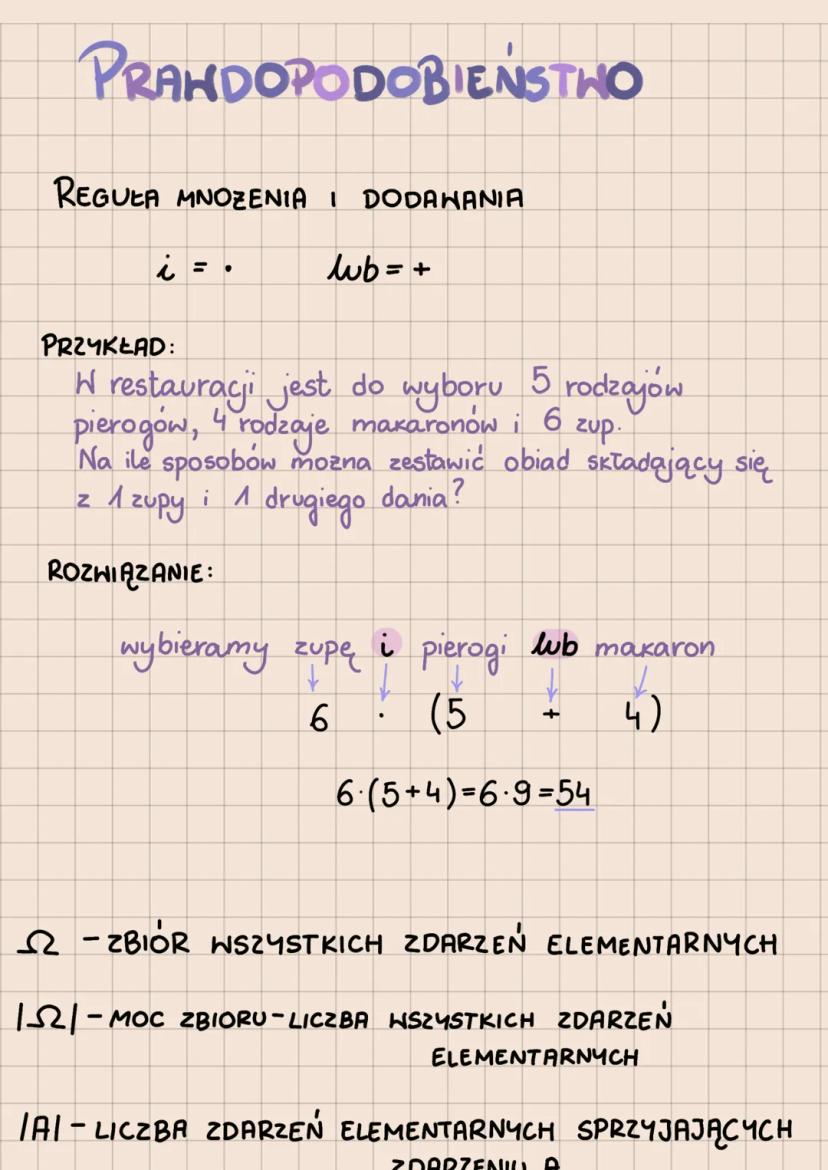 PRAWDOPODOBIEŃSTWO
REGUŁA MNOŻENIA I DODAWANIA
i = · lub = +
PRZYKŁAD:
W restauracji jest do wyboru 5 rodzajów
pierogów, 4 rodzaje makaronów i 6 zup.
Na ile sposobów można zestawić obiad składający się
z 1 zupy i 1 drugiego dania?
ROZWIĄZANIE:
wybieramy zupę i pierogi lub makaron
6 · (5 + 4)
6·(5+4)=6·9=54
Ω - ZBIÓR WSZYSTKICH ZDARZEŃ ELEMENTARNYCH
|Ω| - MOC ZBIORU - LICZBA WSZYSTKICH ZDARZEŃ
ELEMENTARNYCH
|A| - LICZBA ZDARZEŃ ELEMENTARNYCH SPRZYJAJĄCYCH
ZDARZENIU A